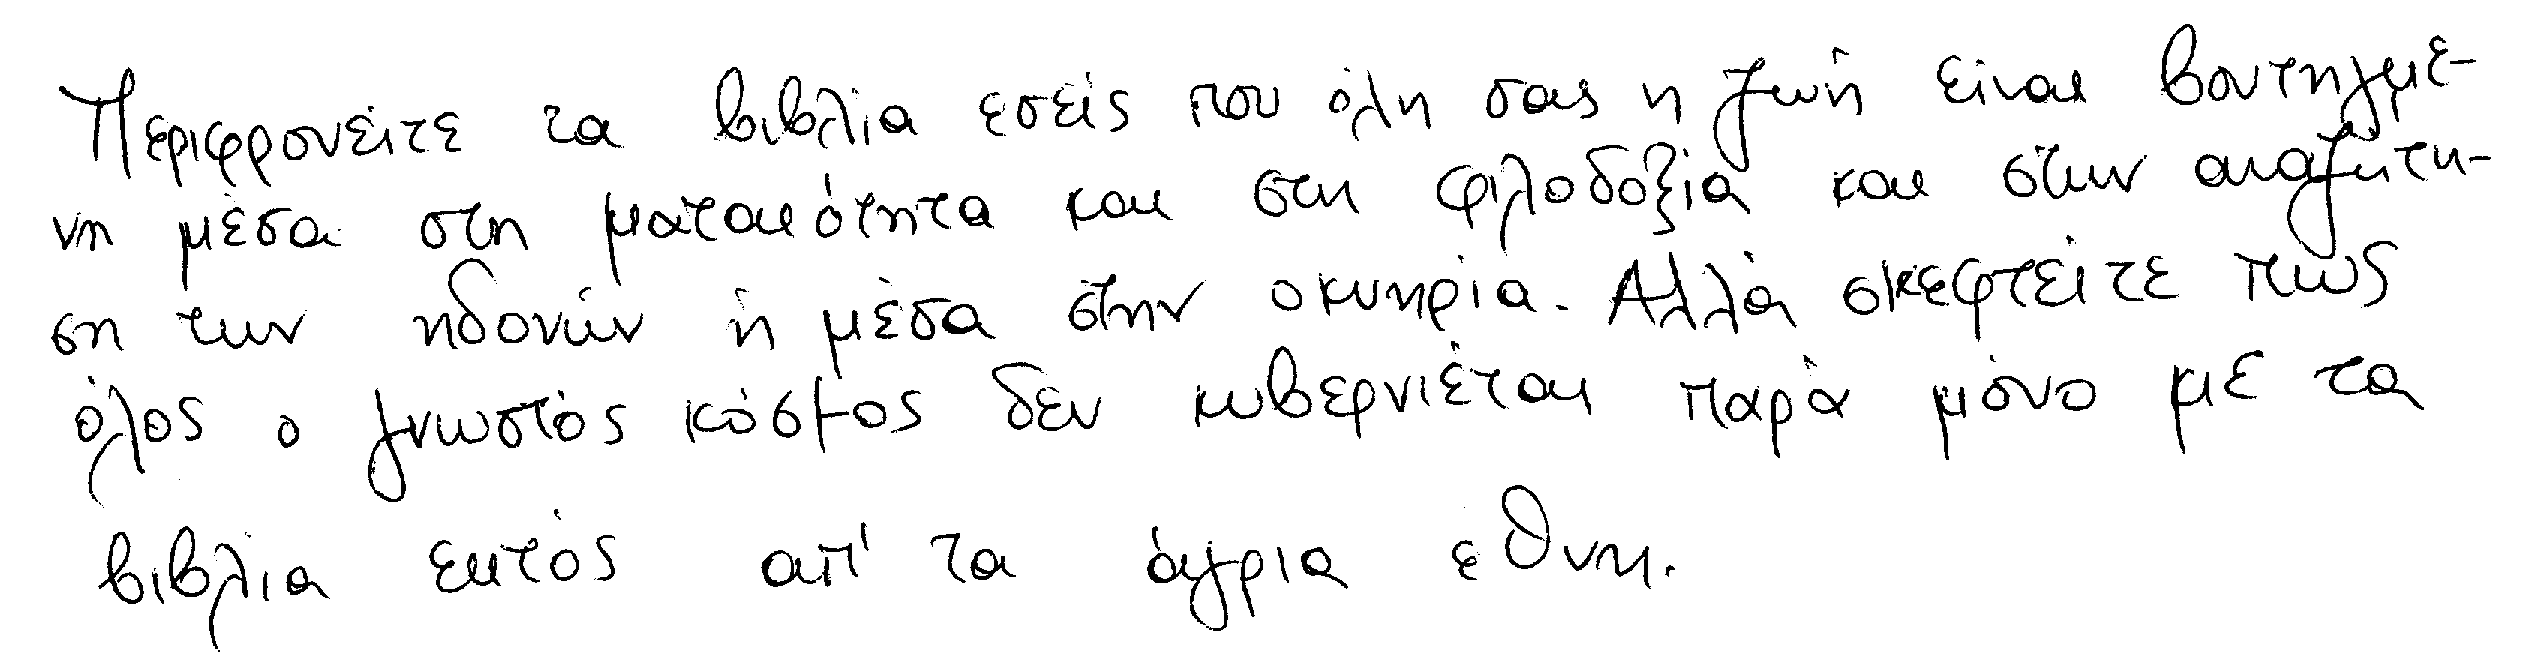 Περιφρονείτε τα βιβλία εσείς που όλη σας η ζωή είναι βουτηγμέ-
νη μέσα στη ματαιότητα και στη φιλοδοξία και στην αναζήτη-
ση των ηδονών ή μέσα στην οκνηρία. Αλλά σκεφτείτε πως
όλος ο γνωστός κόσμος δεν κυβερνιέται παρά μόνο με τα
βιβλία εκτός απ' τα άγρια έθνη.